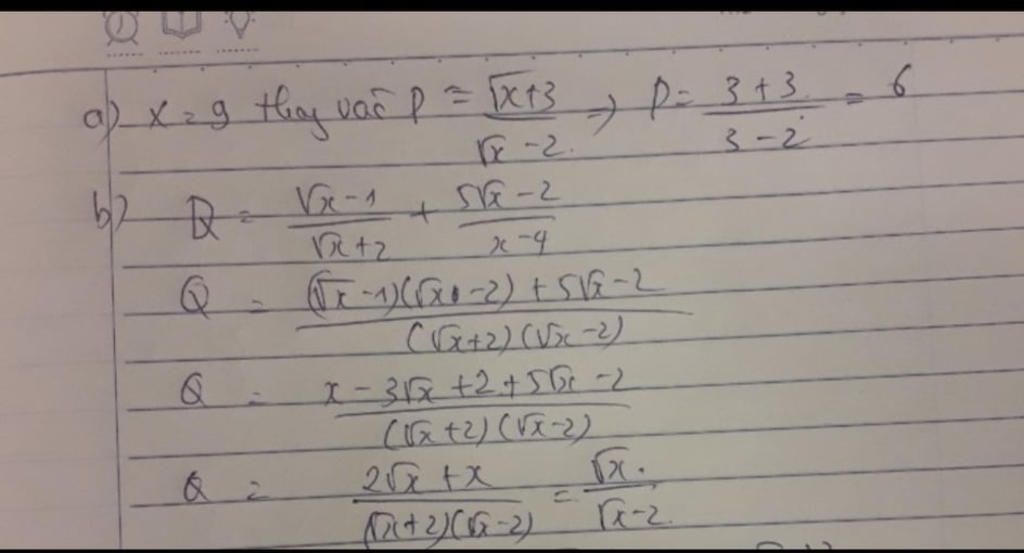 a) x = 9 thay vào P = √x+3 / √x - 2 => P = 3 + 3 / 3 - 2 = 6
b) Q = √x - 1 / √x + 2 + 5√x - 2 / x - 4
Q = (√x - 1)(√x - 2) + 5√x - 2 / (√x+2)(√x - 2)
Q = x - 3√x + 2 + 5√x - 2 / (√x + 2)(√x - 2)
Q = 2√x + x / (√x+2)(√x - 2) = √x / √x - 2